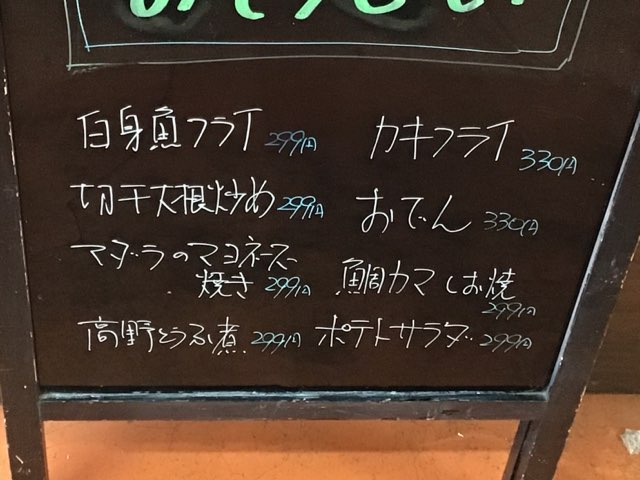 白身魚フライ 299円
カキフライ 330円
切干大根炒め 299円
おでん 330円
マダラのマヨネーズ
焼き 299円
鯛カマしお焼
299円
高野とうふ煮 299円
ポテトサラダ 299円